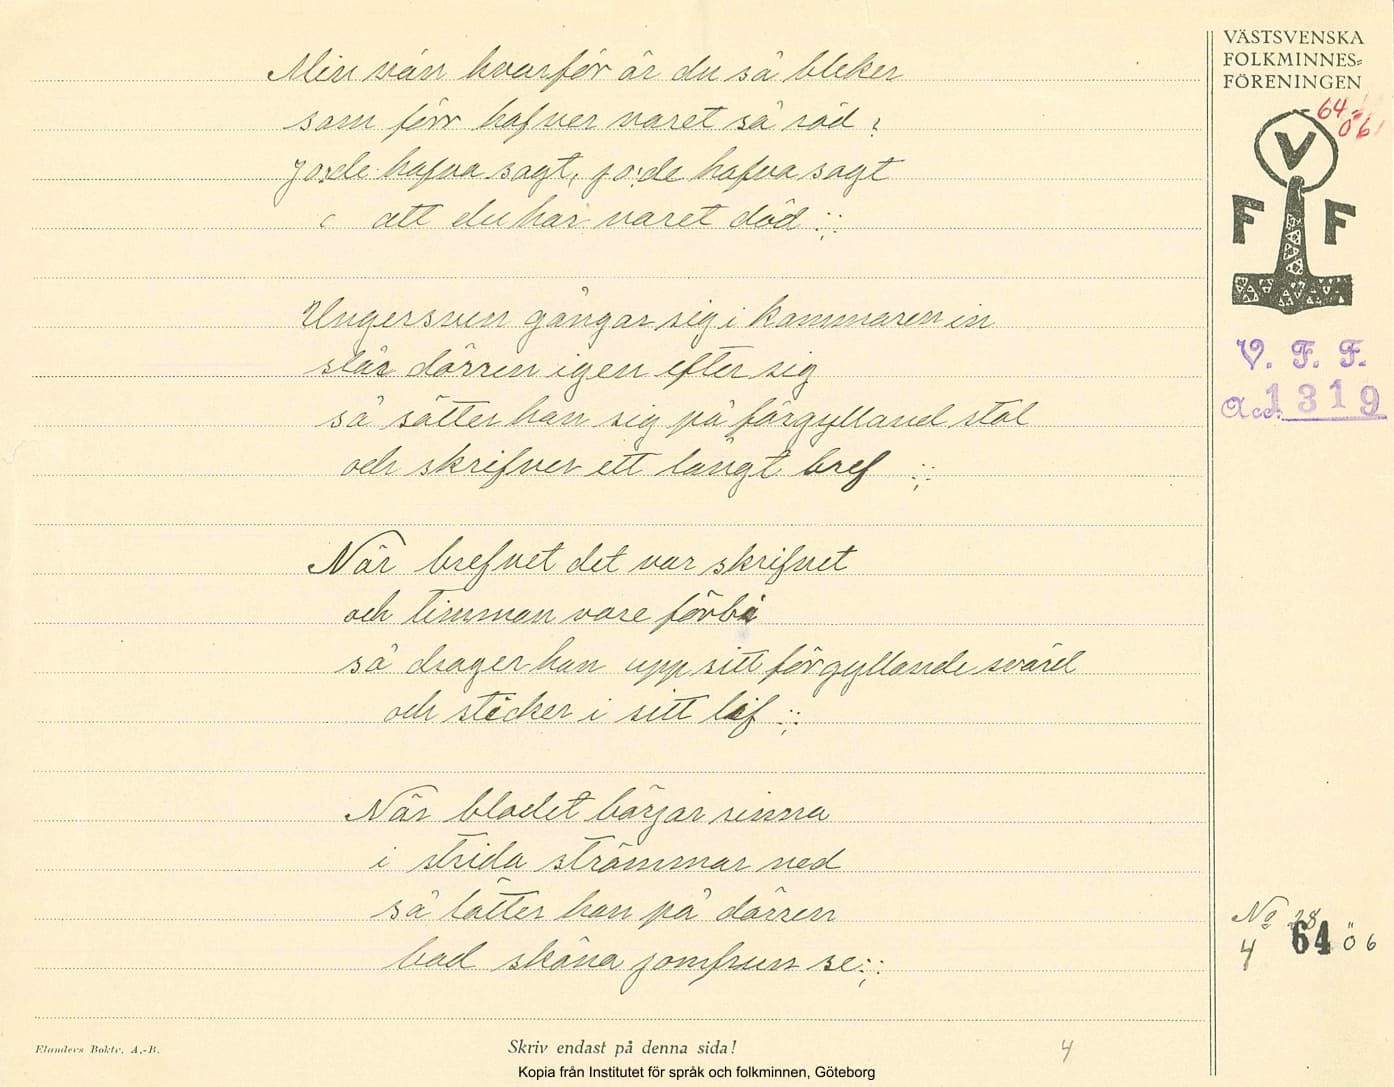 VÄSTSVENSKA
FOLKMINNES=
FÖRENINGEN
64
ö 6
V
F F
V. F. F.
Acc. 1319
Min vän hvarför är du så bleker
som förr hafver varet så röd ?
jo de hafva sagt, jo de hafva sagt
att du har varet död :;:
Ungersven gångar sig i kammaren in
slår dörren igen efter sig
så sätter han sig på förgylland stol
och skrifver ett långt bref :;:
När brefvet det var skrifvet
och timman vore förbi
så drager han upp sitt förgyllande svärd
och sticker i sitt lif :;:
När blodet börjar rinna
i strida strömmar ned
så låtter han på dörren
bad sköna jomfrun se :;:
No 28
4 64 ö 6
Elanders Boktr. A.-B.
Skriv endast på denna sida!
4
Kopia från Institutet för språk och folkminnen, Göteborg